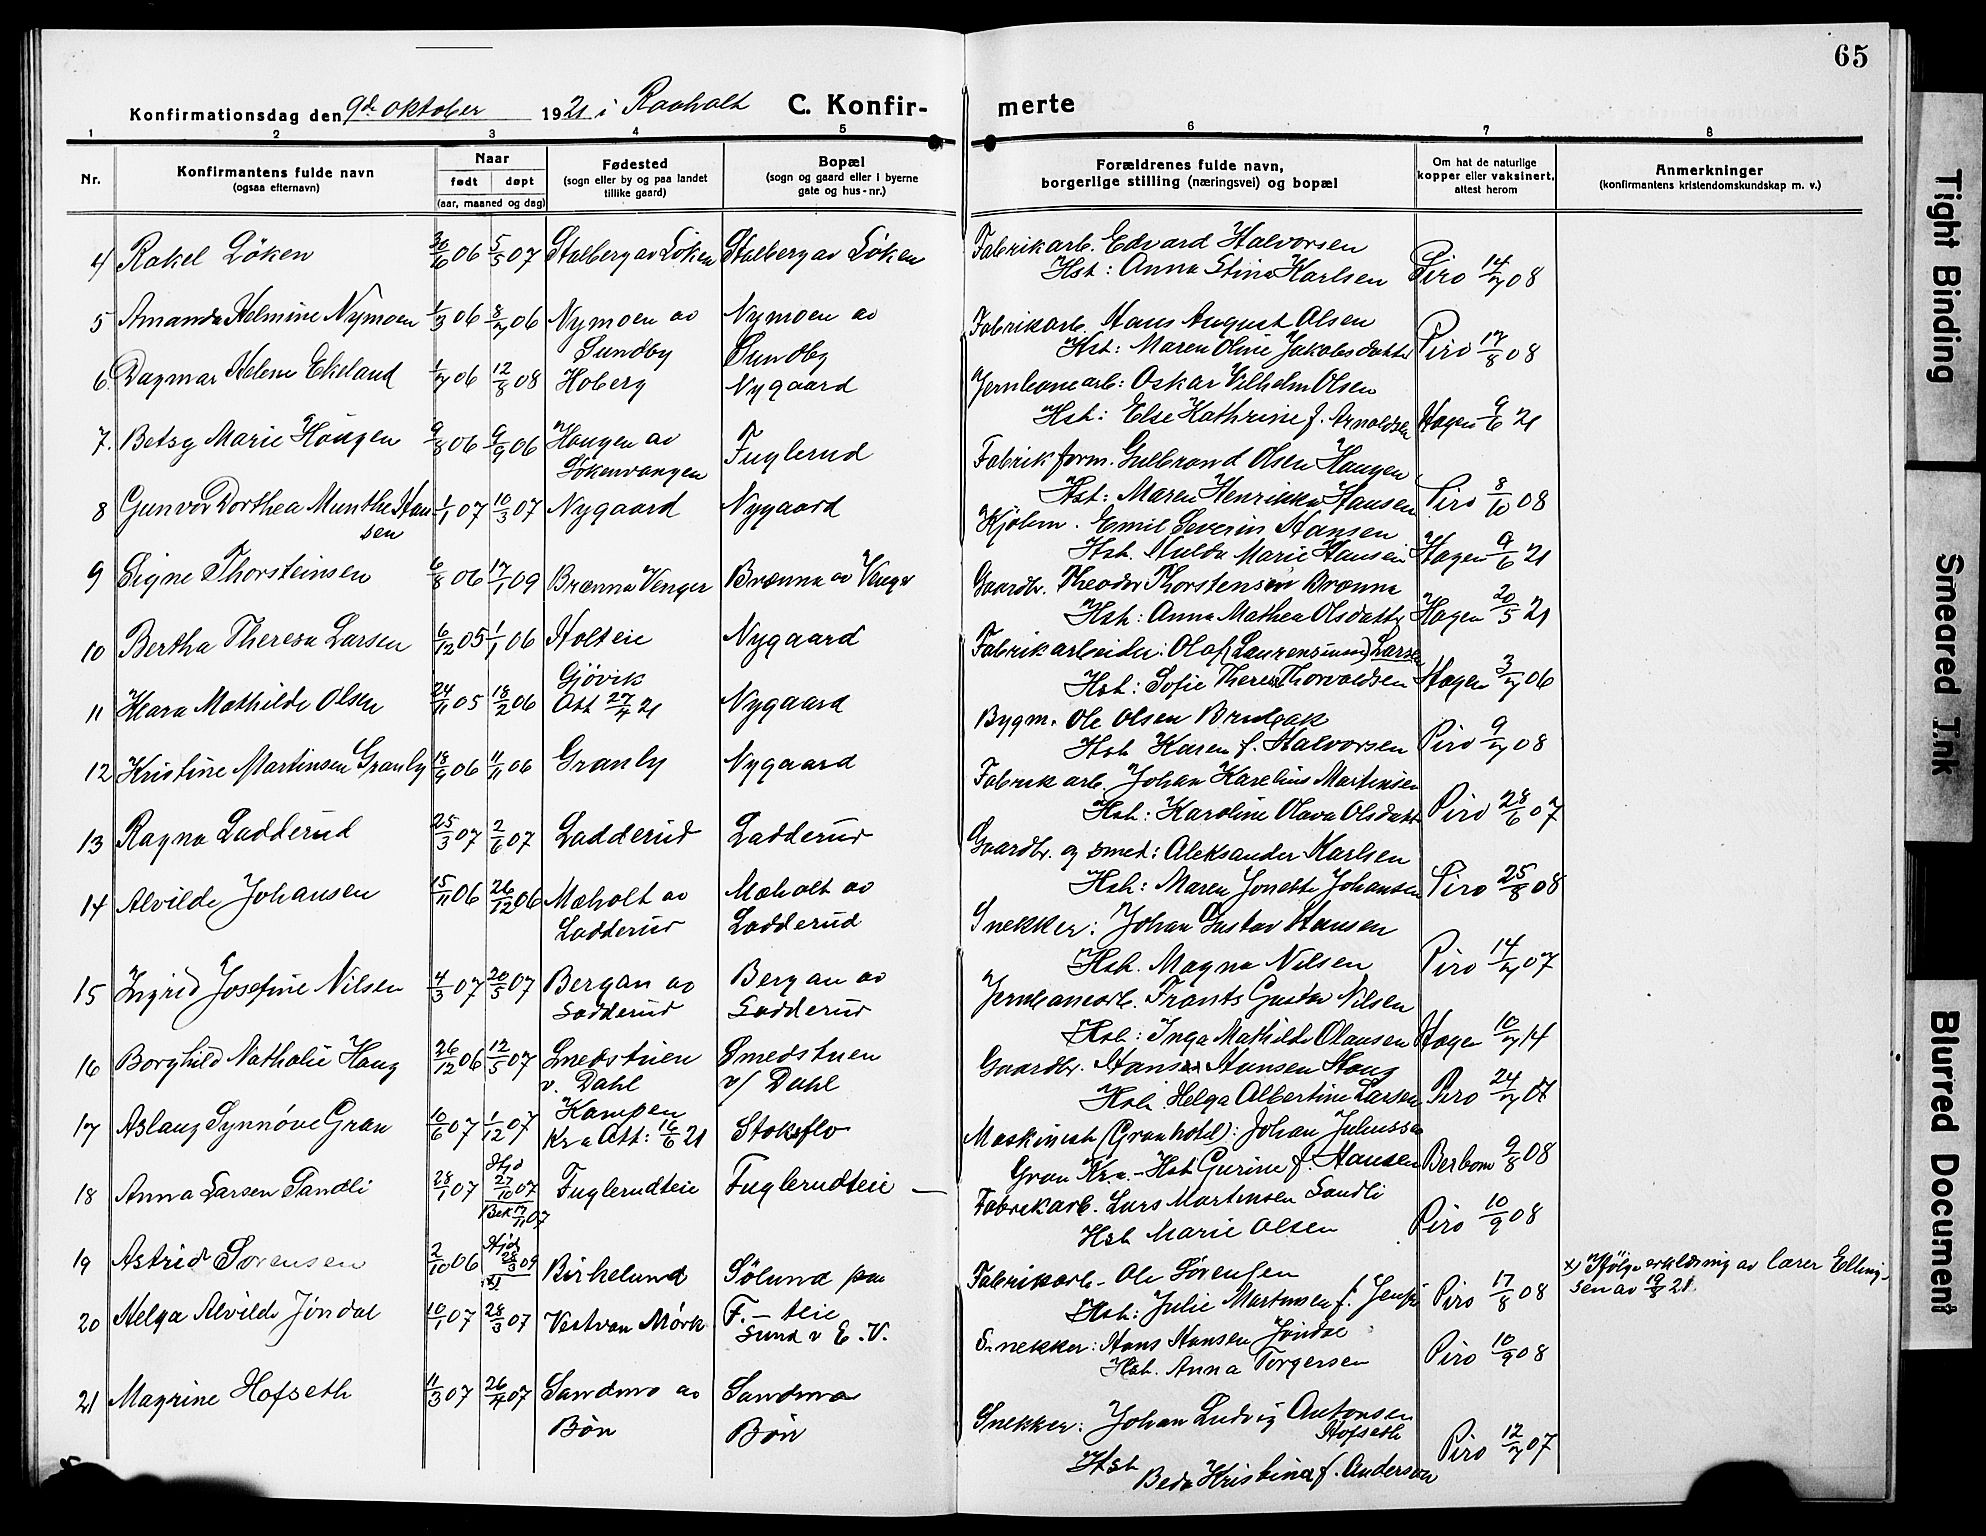 65
Konfirmationsdag den 9de oktober 1921 i Raaholt C. Konfir- merte
1 2 3 4 5 6 7 8
Nr.
Konfirmantens fulde navn
(ogsaa efternavn)
Naar
født døpt
(aar, maaned og dag)
Fødested
(sogn eller by og paa landet
tillike gaard)
Bopæl
(sogn og gaard eller i byerne
gate og hus-nr.)
Forældrenes fulde navn,
borgerlige stilling (næringsvei) og bopæl
Om hat de naturlige
kopper eller vaksinert,
attest herom
Anmerkninger
(konfirmantens kristendomskundskap m. v.)
4 Rakel Löken 30/6 06 5/5 07 Stalberg av Löken Stalberg av Löken Fabrikarb. Edvard Halvorsen
Hst: Anna Stina Karlsen Piro 14/7 08
5 Amanda Helmine Nymoen 1/3 06 8/7 06 Nymoen av Nymoen av Fabrikarb. Hans August Olsen
Sundby Sundby Hst: Maren Oline Jakobsdatter Piro 17/8 08
6. Dagmar Helene Ekeland 1/7 06 12/8 08 Hoberg Nygaard Jernbanearb: Oskar Vilhelm Olsen
Hst: Else Kathrine f. Arnoldsen Hagen 9/6 21
7. Betsy Marie Haugen 9/8 06 9/9 06 Haugen av Fuglerud Fabrikform. Gulbrand Olsen Haugen
Lökenvangen Hst: Maren Henrikka Hansen Piro 8/10 08
8 Gunvor Dorthea Munthe Han 1/1 07 10/3 07 Nygaard Nygaard Kjölm. Emil Severin Hansen
sen Hst. Hulda Marie Hansen Hagen 9/6 21
9 Signe Thorsteinsen 6/8 06 17/1 09 Brænna Venger Brænna av Venger Gaardbr. Theodor Thorstensen Brænna
Hst: Anna Mathea Olsdatter Hagen 20/5 21
10 Bertha Theresa Larsen 6/12 05 1/1 06 Holteie Nygaard Fabrikarbeider: Olaf (Laurensius) Larsen
Hst: Sofie Theres Thorvaldsen Hagen 3/7 06
11 Klara Mathilde Olsen 24/11 05 18/2 06 Gjövik Nygaard Bygm. Ole Olsen
Att 27/4 21 Hst Karen f. Halvorsen Piro 9/7 08
12 Kristine Martinsen Granly 18/9 06 11/11 06 Granly Nygaard Fabrikarb. Johan Karelius Martinsen
Hst: Karoline Olava Olsdatt Piro 28/6 07
13 Ragna Ladderud 25/3 07 2/6 07 Ladderud Ladderud Gaardbr. og smed: Aleksander Karlsen
Hst: Maren Jonette Johansen Piro 25/8 08
14 Alvilde Johansen 15/11 06 26/12 06 Mæholt av Mæholt av Snekker: Johan Gustav Hansen
Ladderud Ladderud Hst. Magna Nilsen Piro 14/7 07
15 Ingrid Josefine Nilsen 4/3 07 20/5 07 Bergan av Bergan av Jernbanearb. Frants Gustav Nilsen
Ladderud Ladderud Hst: Inga Mathilde Olausen Hagen 10/7 14
16 Borghild Nathalie Haug 26/12 06 12/5 07 Smedstuen Smedstuen Gaardbr. Hans Hansen Haug
v. Dahl v/ Dahl Hst. Helga Albertine Larsen Piro 24/7 07
17 Aslaug Synnöve Gran 10/6 07 1/12 07 Kampen Stoksflo Maskinist (Granhotel): Johan Juliussen
Kr.a Att: 16/6 21 Gran Kra. - Hst Gurine f. Hansen Berbom 9/8 08
18 Anna Larsen Sandli 28/1 07 Hjd 27/10 07 Fuglerudteie Fuglerudteie Fabrikarb. Lars Martinsen Sandli
Bek 17/11 07 Hst Marie Olsen Piro 10/9 08
19 Astrid Sörensen 2/10 06 Hjd 28/3 09 Birkelund Sölund paa Fabrikarb. Ole Sörensen x) Ifölge erklæring av lærer Elling-
x) F. - teie Hst: Julie Martinsen f. Piro 17/8 08 sen av 19/8 21.
20 Helga Alvilde Jöndal 10/1 07 28/3 07 Vestvan Mörk Sund v E.V. Snekker: Hans Hansen Jöndal
Hst. Anna Torgersen Piro 10/9 08
21 Magrine Hofseth 11/3 07 26/4 07 Sandmo av Sandmo Snekker: Johan Ludvig Antonsen
Hofseth
Bön Bön Hst Beda Kristina f. Anderson Piro 12/7 07
Tight Binding
Smeared Ink
Blurred Document